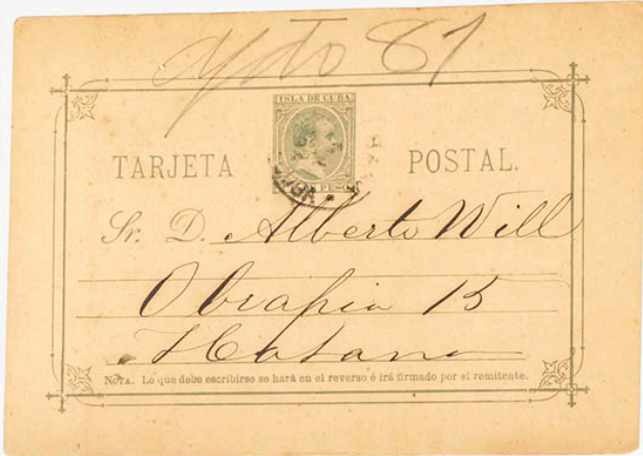 Apdo 87
ISLA DE CUBA
TARJETA POSTAL.
PESO
Sr. D. Alberto Will
Obrapia 15
Habana
NOTA. Lo que debe escribirse se hará en el reverso é irá firmado por el remitente.